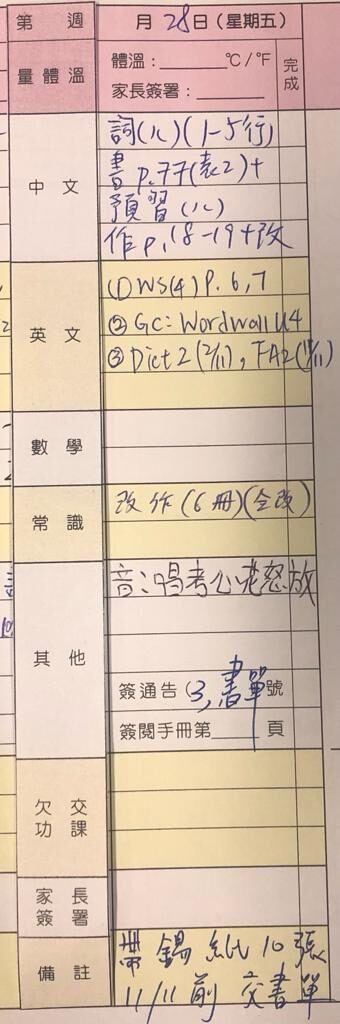 第 週
月 28 日 (星期五)
量 體 溫
體溫: ℃/℉
家長簽署:
完成
中 文
詞(八)(1-5行)
書 p.77(表2)+
預習(八)
作 p.18-19+改
英 文
① WS(4) P.6,7
② GC: Wordwall U4
③ Dict 2 (2/11), FA2(11/11)
數 學
常 識
改 作(6冊)(全改)
其 他
音:唱考心花怒放
簽通告(3,書單 號
簽閱手冊第 頁
欠 交
功 課
家 長
簽 署
備 註
帶 錫 紙 10 張
11/11 前 交 書單